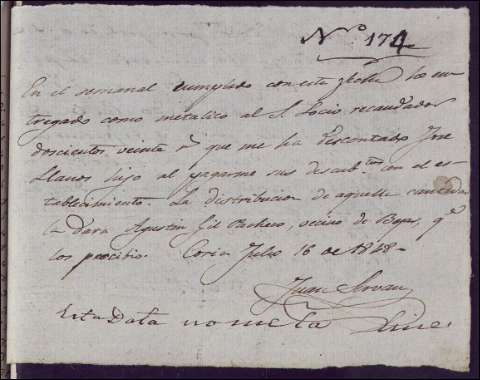 N.º 174
En el semanal cumplido con esta fecha he en
tregado como metalico al S. Socio recaudador
doscientos veinte r.s que me ha descontado José
Llanos hijo al pagarme sus en el es
tablecimiento. La distribucion de aquella cantidad
la dara Agustin Gil Pacheco, vecino de q.e
los percibio. Coria Julio 16 de 1848
Juan
Esta Data no me la